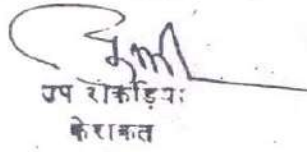 उप रोकड़िया
केराकत